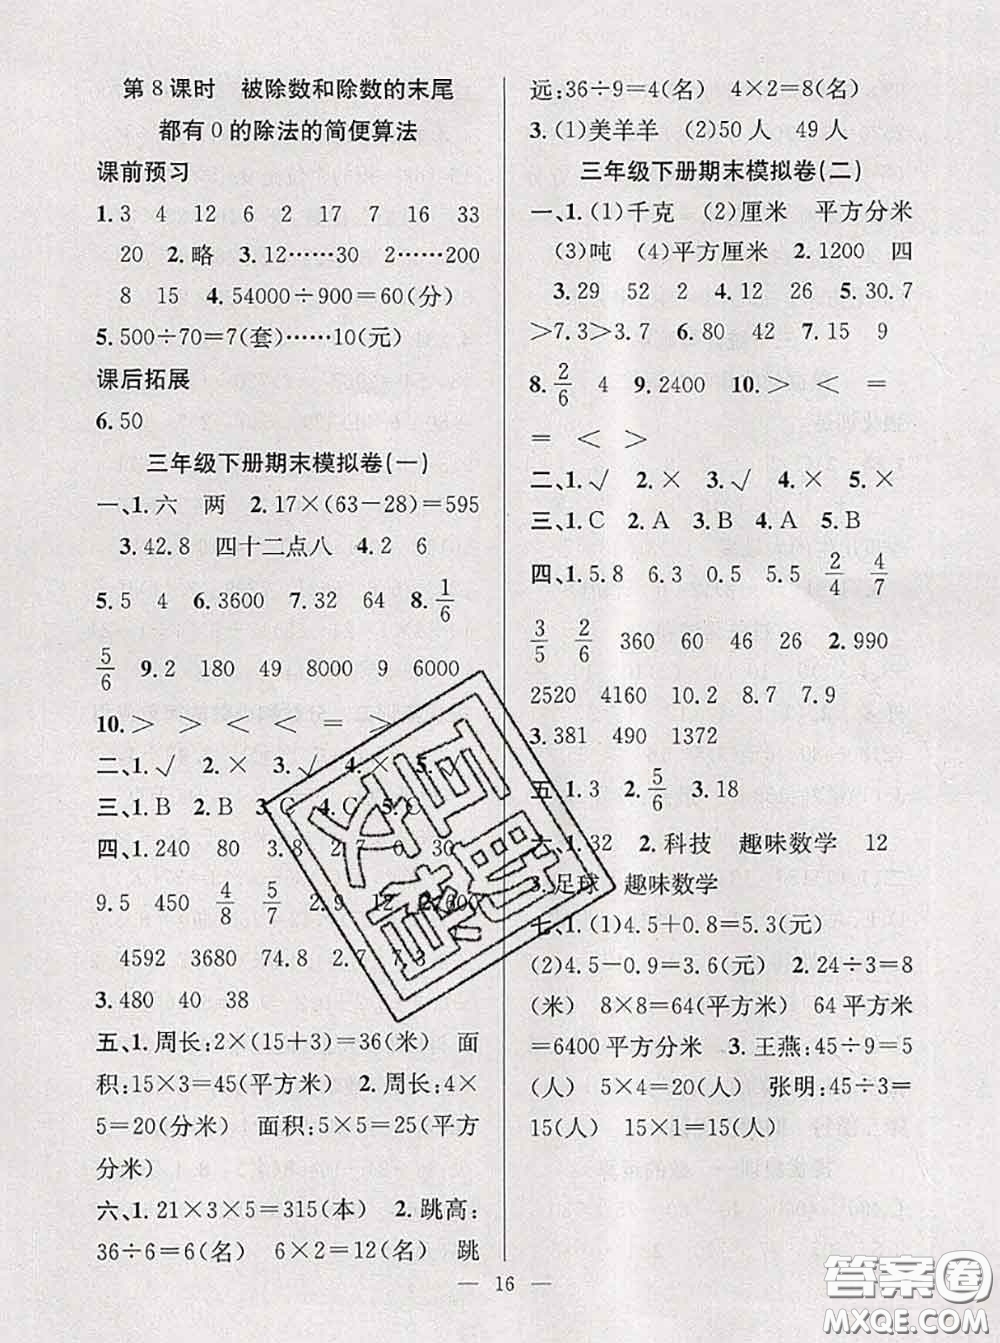 第8课时　被除数和除数的末尾
都有0的除法的简便算法
课前预习
1.3　4　12　6　2　17　7　16　33
20　2.略　3.12……30　2……200
8　15　4.54000÷900=60(分)
5.500÷70=7(套)……10(元)
课后拓展
6.50
三年级下册期末模拟卷(一)
一、1.六　两　2.17×(63-28)=595
3.42.8　四十二点八　4.2　6
5.5　4　6.3600　7.32　64　8.1/6
5/6　9.2　180　49　8000　9　6000
10.>　>　<　<　=　=
二、1.√　2.×　3.√　4.×　5.
三、1.B　2.B　3.C　4.C　5.C
四、1.240　80　3.8　2.7　0　30
9.5　450　4/8　5/7　2.9　12　2.600
4592　3680　74.8　2.7　7.3
3.480　40　38
五、1.周长:2×(15+3)=36(米)　面
积:15×3=45(平方米)　2.周长:4×
5=20(分米)　面积:5×5=25(平方
分米)
六、1.21×3×5=315(本)　2.跳高:
36÷6=6(名)　6×2=12(名)　跳
远:36÷9=4(名)　4×2=8(名)
3.(1)美羊羊　(2)50人　49人
三年级下册期末模拟卷(二)
一、1.(1)千克　(2)厘米　平方分米
(3)吨　(4)平方厘米　2.1200　四
3.29　52　2　4.12　26　5.30.7
>7.3>3.7　6.80　42　7.15　9
8.2/6　4　9.2400　10.>　<　=
=　<　>　=
二、1.√　2.×　3.√　4.×　5.×
三、1.C　2.A　3.B　4.A　5.B
四、1.5.8　6.3　0.5　5.5　2/4　4/7
3/5　2/6　360　60　46　26　2.990
2520　4160　10.2　8.7　7.9
3.381　490　1372
五、1.3　2.5/6　3.18
六、1.32　2.科技　趣味数学　12
3.足球　趣味数学
七、1.(1)4.5+0.8=5.3(元)
(2)4.5-0.9=3.6(元)　2.24÷3=8
(米)　8×8=64(平方米)　64平方米
=6400平方分米　3.王燕:45÷9=5
(人)　5×4=20(人)　张明:45÷3=
15(人)　15×1=15(人)
16
答案圈
MXQE.COM